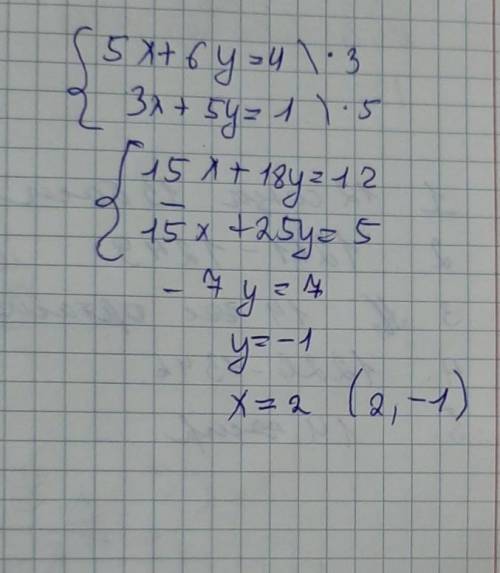 { 5x+6y=4 \ ·3
3x+5y=1 \ ·5
{ 15x+18y=12
–
15x+25y=5
-7y=7
y=-1
x=2 (2,-1)